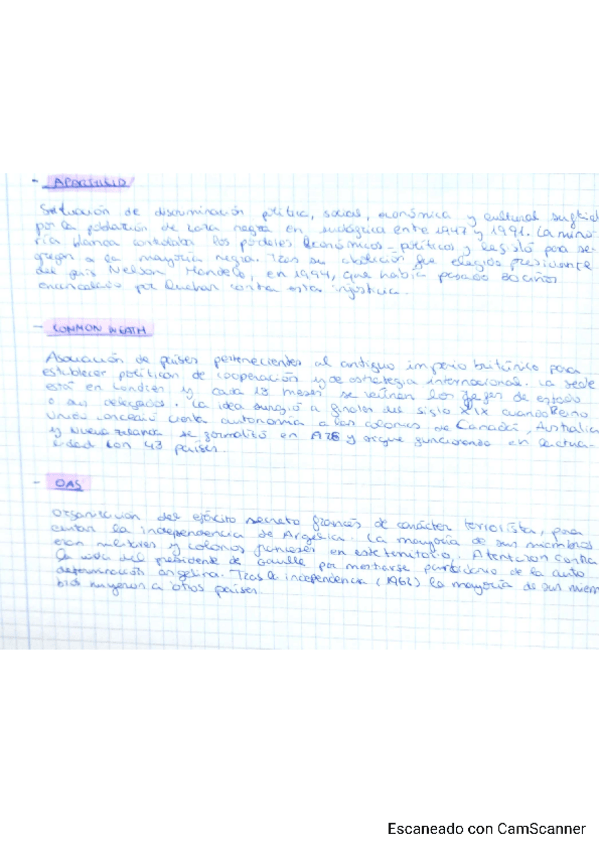 - APARTHEID
Situación de discriminación política, social, económica y cultural sufrida
por la población de raza negra en Sudáfrica entre 1947 y 1991. La mino
ría blanca controlaba los poderes económicos-políticos y legisló para se
gregar a la mayoría negra. Tras su abolición fue elegido presidente
del país Nelson Mandela, en 1994, que había pasado años
encarcelado por luchar contra esta injusticia.
- COMMON WEATH
Asociación de países pertenecientes al antiguo imperio británico para
establecer políticas de cooperación y de estrategia internacional. La sede
está en Londres y cada 18 meses se reúnen los jefes de estado
o sus delegados. La idea surgió a finales del siglo XIX cuando Reino
Unido concedió cierta autonomía a las colonias de Canadá, Australia
y Nueva Zelanda se formalizó en y sigue funcionando en la actua-
lidad con 43 países.
- OAS
Organización del ejército secreto francés de carácter terrorista, para
evitar la independencia de Argelia. La mayoría de sus miembros
eran militares y colonos franceses en este territorio. Atentaron contra
la vida del presidente de Gaulle por mostrarse partidario de la auto
determinación argelina. Tras la independencia (1962) la mayoría de sus miem
bros huyeron a otros países.
Escaneado con CamScanner